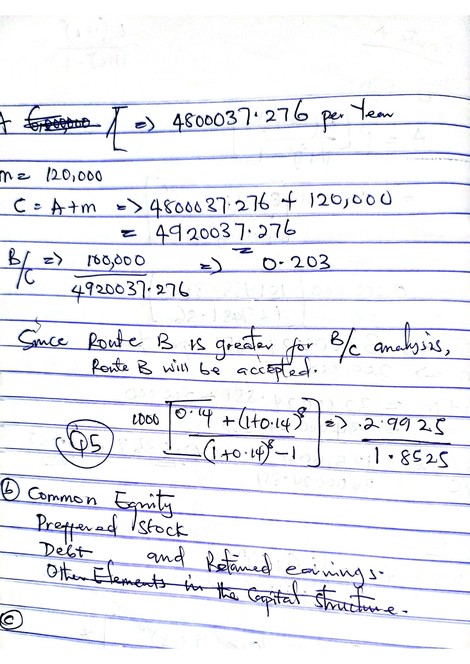 A [ => 4800037.276 per Year
m = 120,000
C = A+m => 4800037.276 + 120,000
= 4920037.276
B/C => 100,000 / 4920037.276 => 0.203
Since Route B is greater for B/C analysis,
Route B will be accepted.
Q5 1000 [ 0.14 + (1+0.14)^8 / (1+0.14)^8 - 1 ] => 2.9925 / 1.8525
(b) Common Equity
Preffered Stock
Debt and Retained earnings.
Other Elements in the Capital structure.
(c)